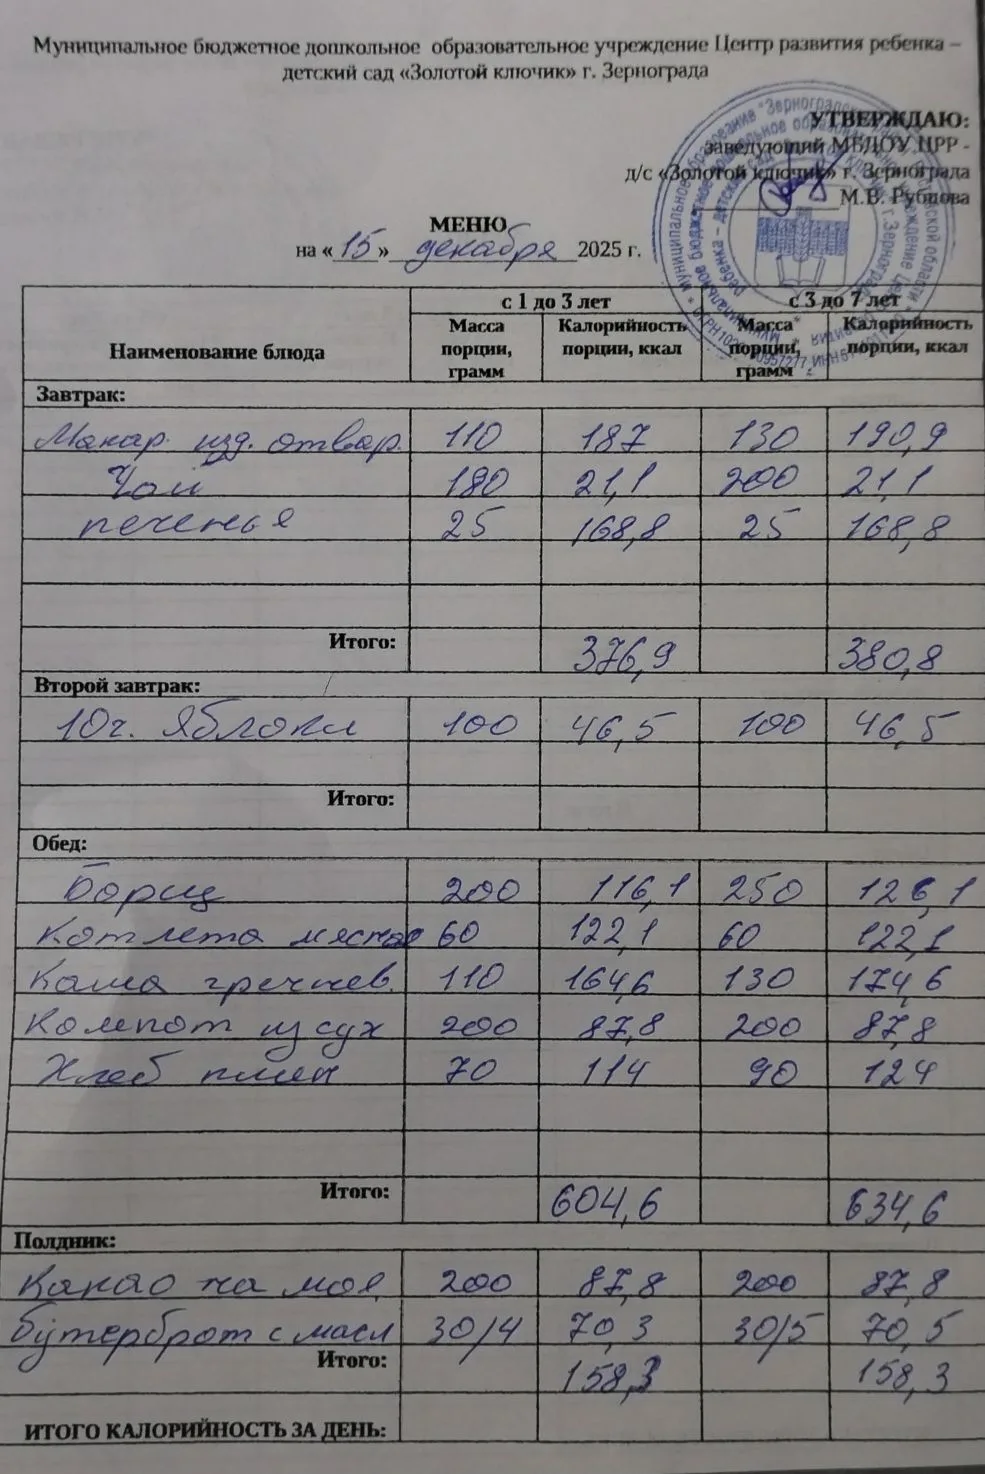 Муниципальное бюджетное дошкольное образовательное учреждение Центр развития ребенка –
детский сад «Золотой ключик» г. Зернограда
УТВЕРЖДАЮ:
заведующий МБДОУ ЦРР -
д/с «Золотой ключик» г. Зернограда
М.В. Рубцова
МЕНЮ
на «15» декабря 2025 г.
Наименование блюда
с 1 до 3 лет с 3 до 7 лет
Масса порции, грамм Калорийность порции, ккал Масса порции, грамм Калорийность порции, ккал
Завтрак:
Макар. изд. отвар. 110 187 130 190,9
Чай 180 21,1 200 21,1
печенья 25 168,8 25 168,8
Итого: 376,9 380,8
Второй завтрак:
10ч. Яблоки 100 46,5 100 46,5
Итого:
Обед:
Борщ 200 116,1 250 126,1
Котлета мясная 60 122,1 60 122,1
Каша гречнев. 110 164,6 130 174,6
Компот из сух 200 87,8 200 87,8
Хлеб пшен 70 114 90 124
Итого: 604,6 634,6
Полдник:
Какао на мол 200 87,8 200 87,8
бутерброт с масл 30/4 70,3 30/5 70,5
Итого: 158,3 158,3
ИТОГО КАЛОРИЙНОСТЬ ЗА ДЕНЬ: